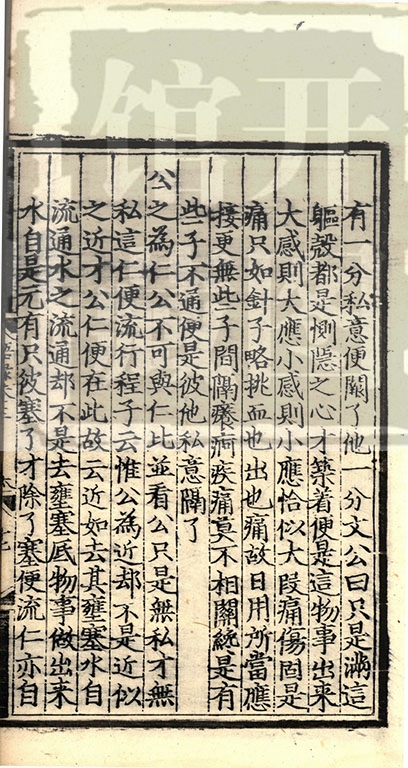 有一分私意便闕了他一分文公曰只是滿這
軀殼都是惻隱之心才築着便是這物事出來
大感則大應小感則小應恰似大段痛傷固是
痛只如針子略挑血也出也痛故日用所當應
接更無些子間隔癢痾疾痛莫不相關纔是有
些子不通便是彼他私意隔了
公之為仁公不可與仁比並看公只是無私才無
私這仁便流行程子云惟公為近却不是近似
之近才公仁便在此故云近如去其壅塞水自
流通水之流通却不是去壅塞底物事做出來
水自是元有只彼塞了才除了塞便流仁亦自